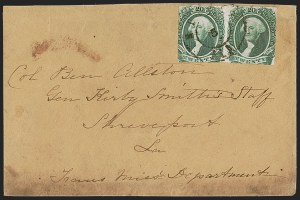 Col Ben Allston
Gen Kirby Smith's Staff
Shreveport
La
Trans Miss Department